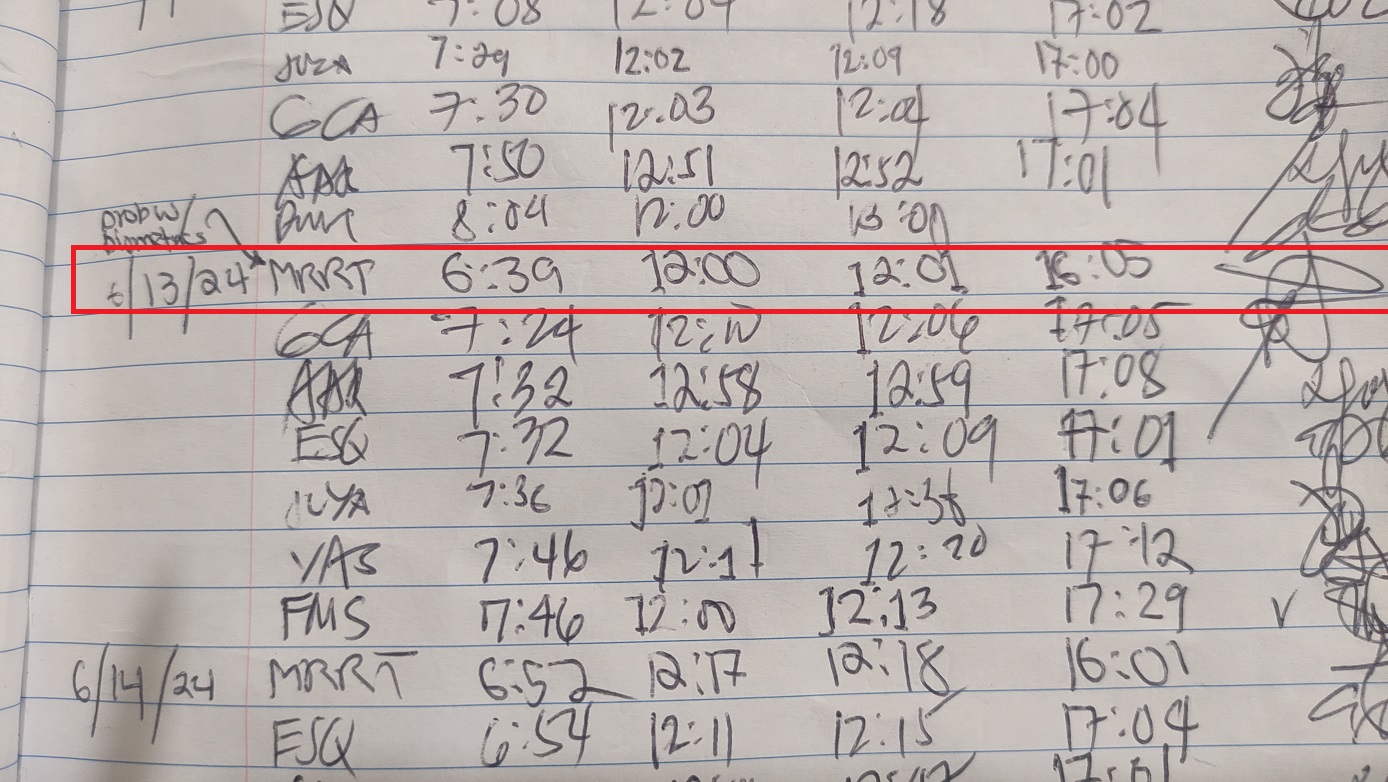 ESQ 7:08 12:04 12:18 17:02
7:29 12:02 12:09 17:00
GCA 7:30 12:03 12:04 17:04
AAR 7:50 12:51 12:52 17:01
8:04 12:00 13:01
prob w/
biometrics
6/13/24 MRRT 6:39 12:00 12:01 16:05
GCA 7:24 12:10 12:06 17:05
AAR 7:32 12:58 12:59 17:08
ESQ 7:32 12:04 12:09 17:01
7:36 12:02 12:38 17:06
VAS 7:46 12:11 12:20 17:12
FMS 7:46 12:00 12:13 17:29
6/14/24 MRRT 6:52 12:17 12:18 16:01
ESQ 6:54 12:11 12:15 17:04